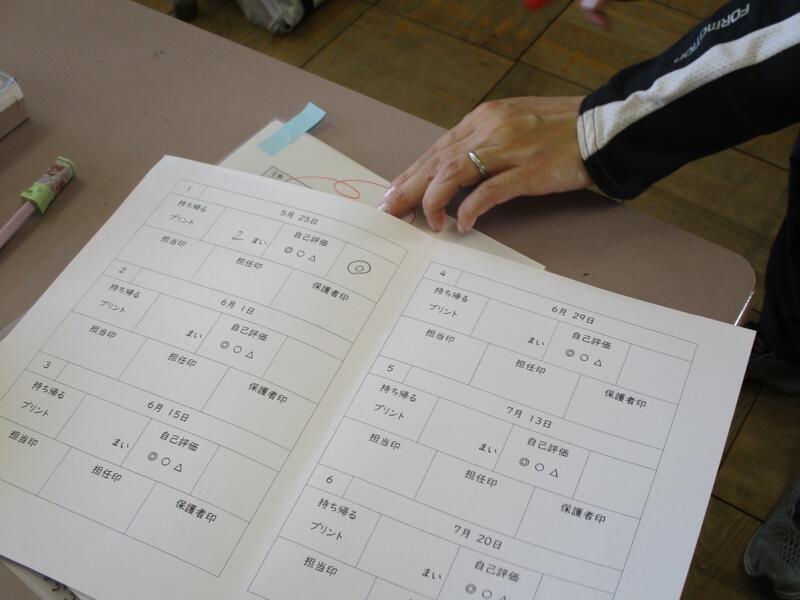 FORMOTION
1
5月 25日
持ち帰る
プリント
2 まい
自己評価
◎ ○ △
◎
担当印
担任印
保護者印
2
6月 1日
持ち帰る
プリント
まい
自己評価
◎ ○ △
担当印
担任印
保護者印
3
6月 15日
持ち帰る
プリント
まい
自己評価
◎ ○ △
担当印
担任印
保護者印
4
6月 29日
持ち帰る
プリント
まい
自己評価
◎ ○ △
担当印
担任印
保護者印
5
7月 13日
持ち帰る
プリント
まい
自己評価
◎ ○ △
担当印
担任印
保護者印
6
7月 20日
持ち帰る
プリント
まい
自己評価
◎ ○ △
担当印